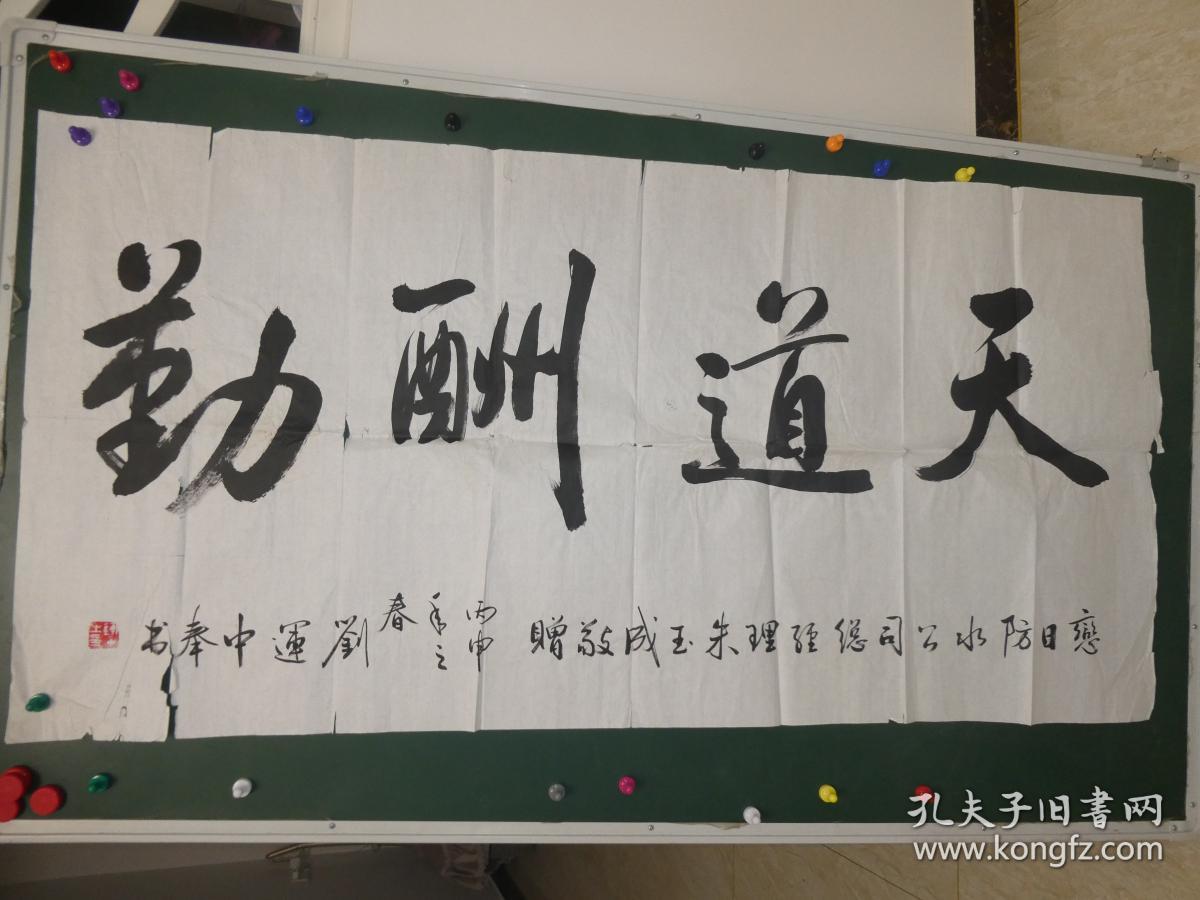 天道酬勤
戀日防水公司总经理朱玉成敬贈
丙申
年之
春
劉運中奉书
孔夫子旧書网
www.kongfz.com